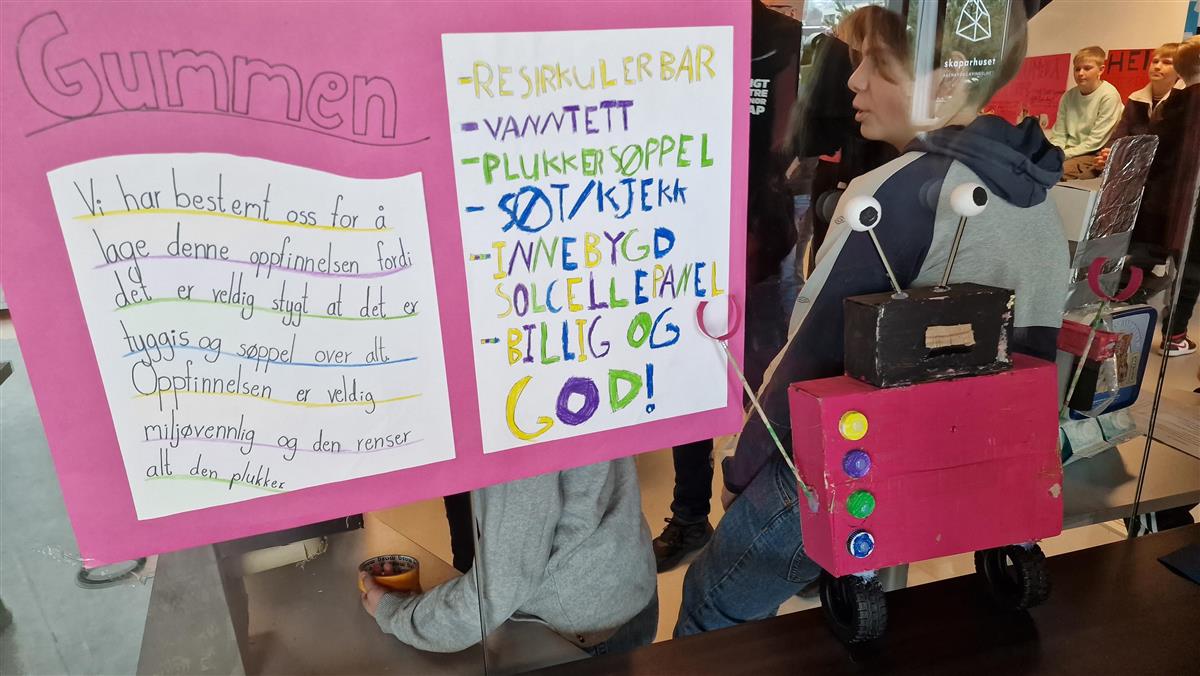 Gummen
Vi har bestemt oss for å
lage denne oppfinnelsen fordi
det er veldig stygt at det er
tyggis og søppel over alt.
Oppfinnelsen er veldig
miljøvennlig og den renser
alt den plukker
-RESIRKULERBAR
-VANNTETT
-PLUKKER SØPPEL
-SØT/KJEKK
-INNEBYGD
SOLCELLEPANEL
-BILLIG OG
GOD!
skaparhuset
HEI